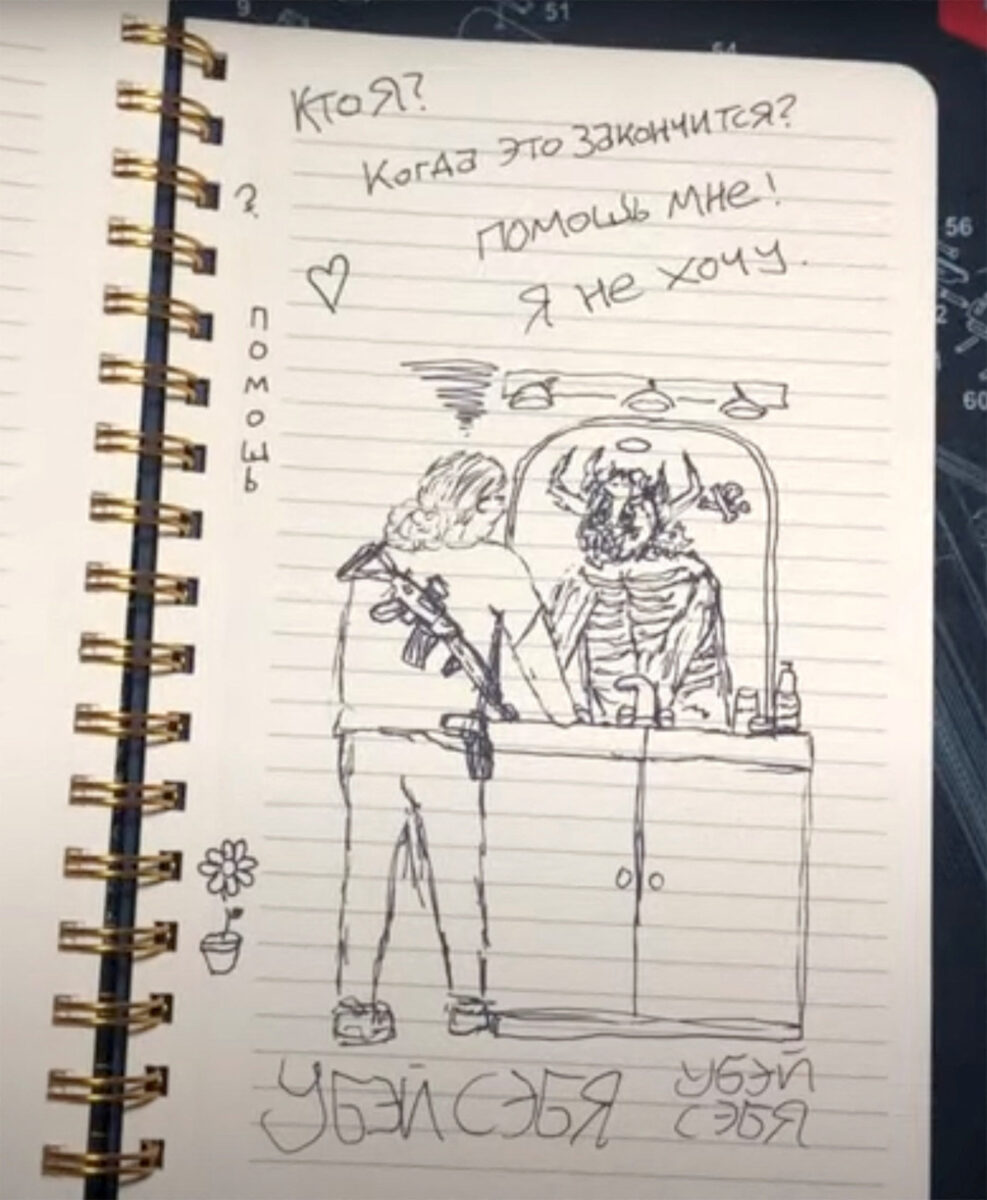 9
51
54
Кто я?
Когда это закончится?
?
помошь мне!
я не хочу.
помошь
56
2
60
УБЭЙ СЭБЯ
УБЭЙ
СЭБЯ